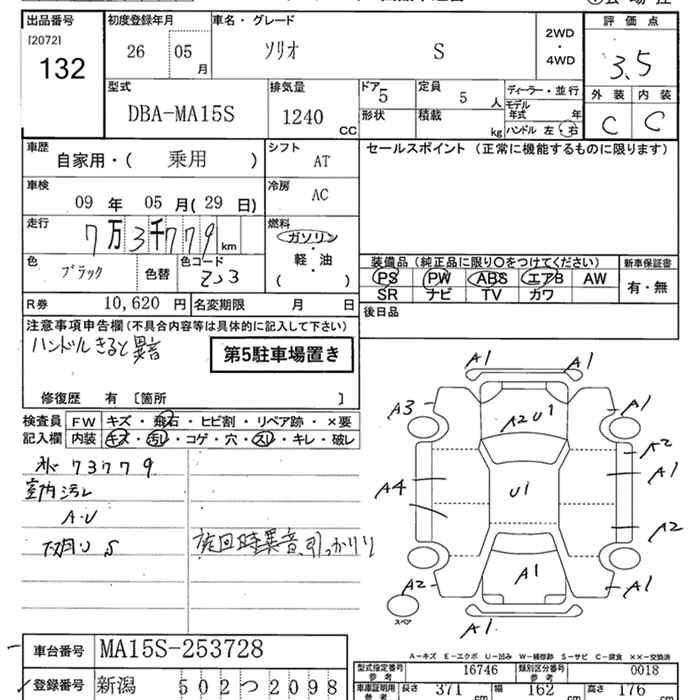 出品番号 初度登録年月 車名・グレード 評価点
[2072]
132 26 05月 ソリオ S 2WD・4WD 3.5
型式 排気量 ドア 5 定員 5人 ディーラー・並行 外装 内装
DBA-MA15S 1240 CC 形状 積載 kg モデル年式 年 C C
ハンドル 左・右
車歴 シフト セールスポイント (正常に機能するものに限ります)
自家用・( 乗用 ) AT
車検 冷房
09年 05月(29日) AC
走行 燃料
7万3千779km ガソリン
軽・油
( )
色 色コード 装備品(純正品に限り○をつけてください) 新車保証書
ブラック 色替 ZJ3 PS PW ABS エアB AW 有・無
SR ナビ TV カワ
R券 10,620円 名変期限 月 日 後日品
注意事項申告欄(不具合内容等は具体的に記入して下さい)
ハンドルきると異音
第5駐車場置き
修復歴 有 [箇所 ]
検査員 FW キズ・飛石・ヒビ割・リペア跡・×要
記入欄 内装 キズ・汚レ・コゲ・穴・スレ・キレ・破レ
73779
室内汚レ
A・U
下廻り S 旋回時異音、引っかかり
A1 A1
A3 A2U1 A1
A2
A4 U1 A1
A2
A2 A1 A1
スペア A1
A-キズ E-エクボ U-凹み W-補修跡 S-サビ C-腐食 ××-交換済
車台番号 MA15S-253728
型式指定番号 参考 16746 類別区分番号 参考 0018
登録番号 新潟 502つ2098
車庫証明用 参考 長さ 371cm 幅 162cm 高さ 176cm